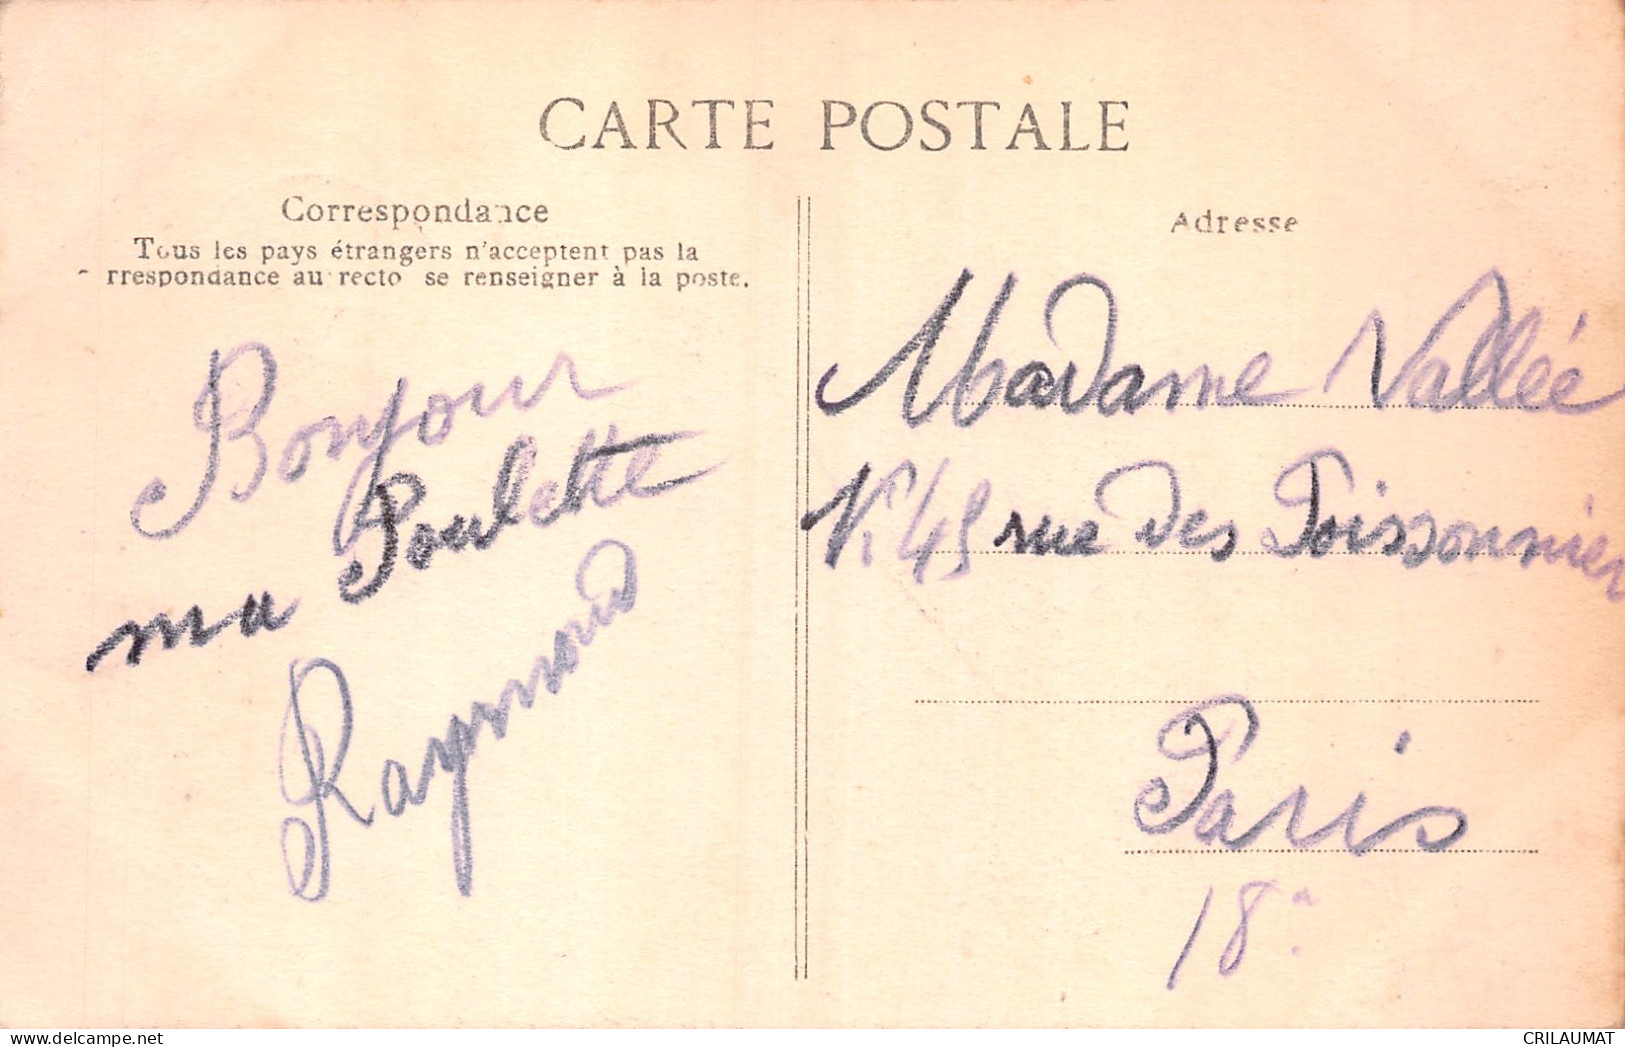 CARTE POSTALE
Correspondance
Tous les pays étrangers n'acceptent pas la
rrespondance au recto se renseigner à la poste.
Bonjour
ma Poulette
Raymond
Adresse
Madame Vallée
N° 45 rue des Poissonnier
Paris
18e
www.delcampe.net
CRILAUMAT